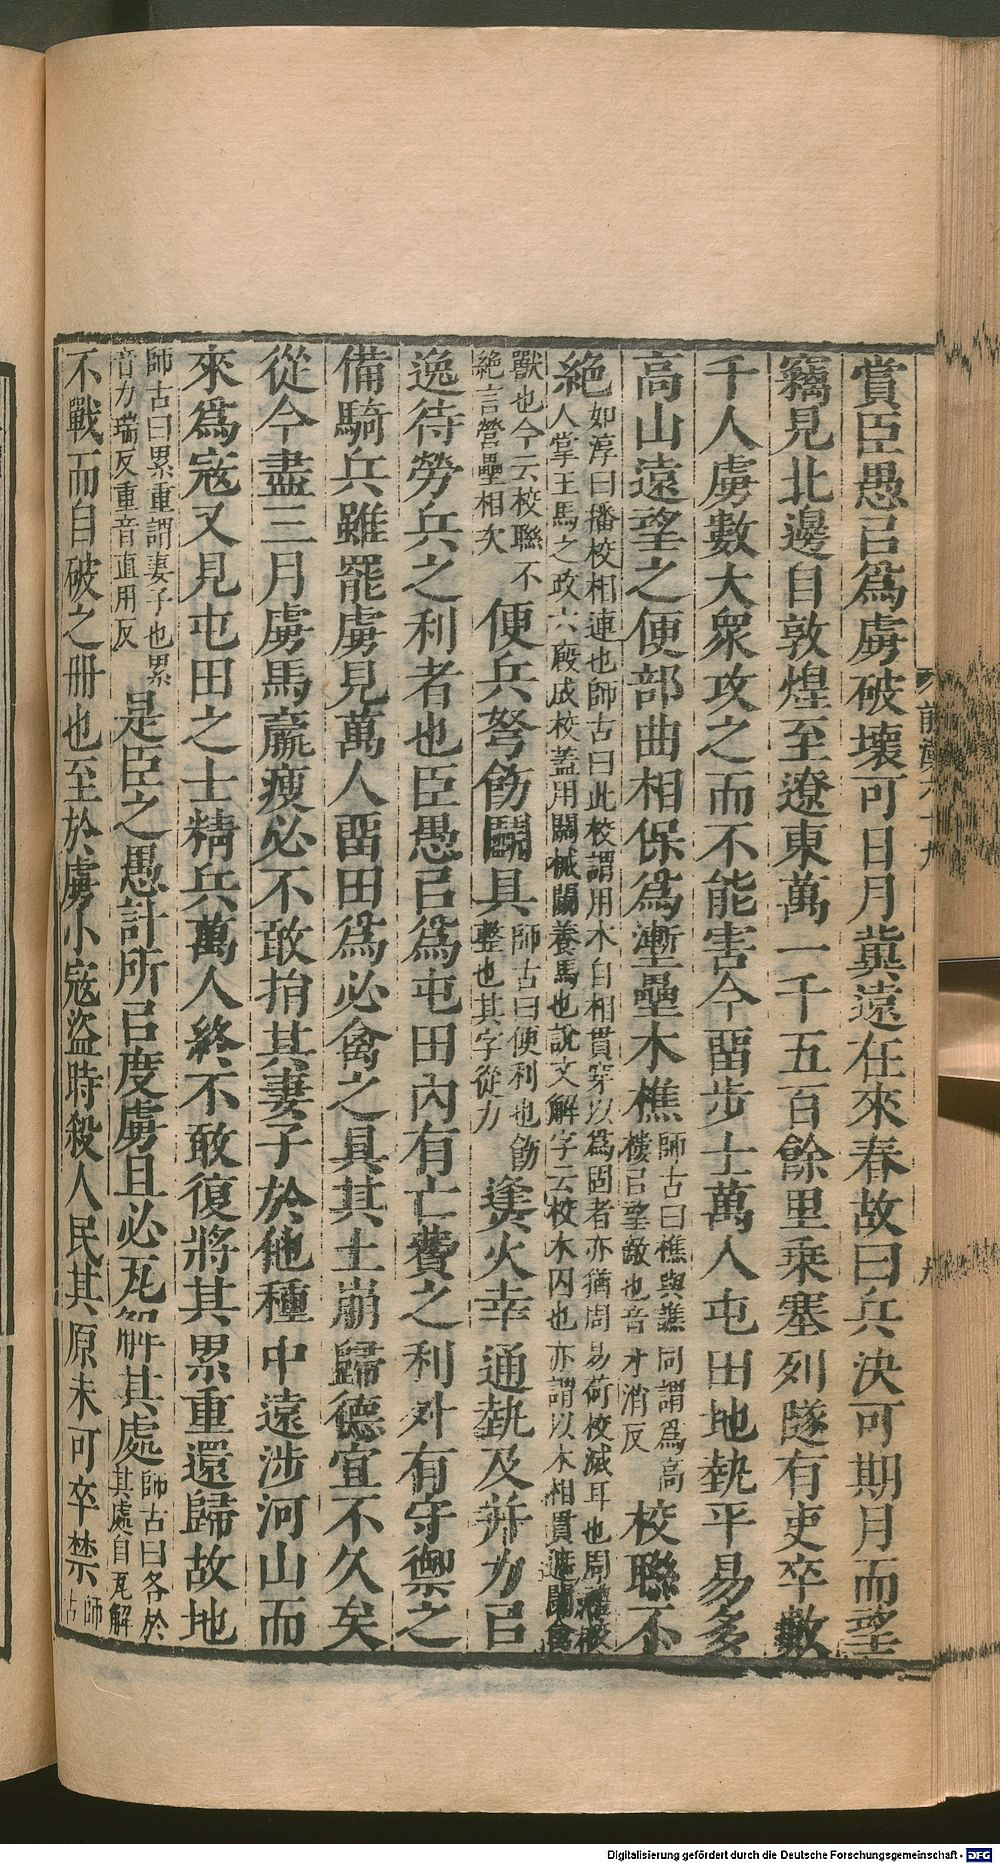 賞臣愚㠯爲虜破壞可日月冀遠在來春故曰兵決可期月而望
竊見北邊自敦煌至遼東萬一千五百餘里乗塞列隧有吏卒數
千人虜數大衆攻之而不能害今畱步士萬人屯田地埶平易多
高山遠望之便部曲相保爲壍壘木樵師古曰樵與譙同謂爲高樓㠯望敵也音才消反校聯不
絶如淳曰播校相連也師古曰此校謂用木自相貫穿以爲固者亦猶周易荷校滅耳也周禮校人掌王馬之政六廄成校蓋用關械闌養馬也說文解字云校木囚也亦謂以木相貫遮闌禽
獸也今云校聯不絶言營壘相次便兵弩飭鬬具師古曰便利也飭整也其字從力㷭火幸通埶及并力㠯
逸待勞兵之利者也臣愚㠯爲屯田內有亡費之利外有守禦之
備騎兵雖罷虜見萬人畱田爲必禽之具其土崩歸德宜不久矣
從今盡三月虜馬羸瘦必不敢捐其妻子於他種中遠涉河山而
來爲寇又見屯田之士精兵萬人終不敢復將其累重還歸故地
師古曰累重謂妻子也累音力瑞反重音直用反是臣之愚計所㠯度虜且必瓦解其處師古曰各於其處自瓦解
不戰而自破之册也至於虜小寇盜時殺人民其原未可卒禁師古
前漢六十九
九
Digitalisierung gefördert durch die Deutsche Forschungsgemeinschaft - DFG